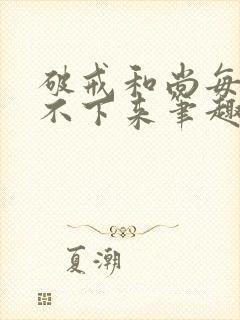 破戒和尚每
不下来笔趣
夏潮